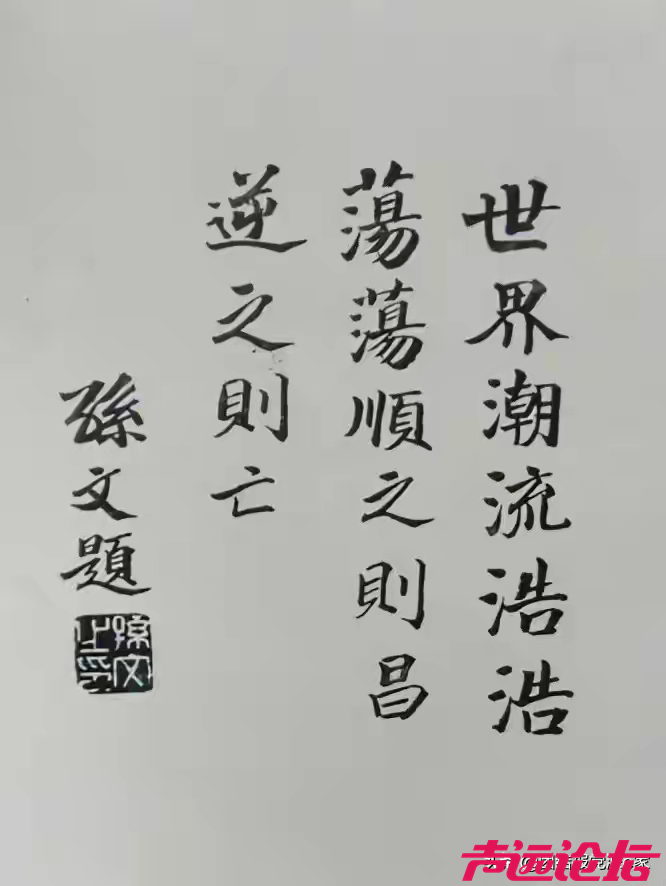 世界潮流浩浩
蕩蕩順之則昌
逆之則亡
孫文題
孫文之印
声远论坛